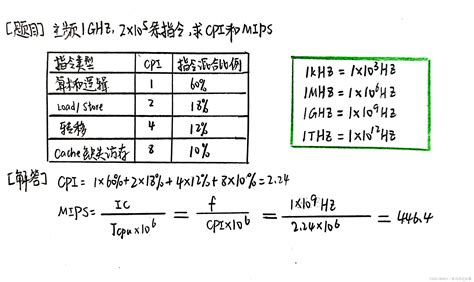 [题目] 主频1GHZ, 2×10⁵条指令, 求CPI和MIPS
指令类型 CPI 指令混合比例
算术和逻辑 1 60%
Load/Store 2 18%
转移 4 12%
Cache缺失访存 8 10%
1KHZ = 1×10³HZ
1MHZ = 1×10⁶HZ
1GHZ = 1×10⁹HZ
1THZ = 1×10¹²HZ
[解答] CPI = 1×60%+2×18%+4×12%+8×10%=2.24
MIPS = IC / Tcpu×10⁶ = f / CPI×10⁶ = 1×10⁹HZ / 2.24×10⁶ = 446.4